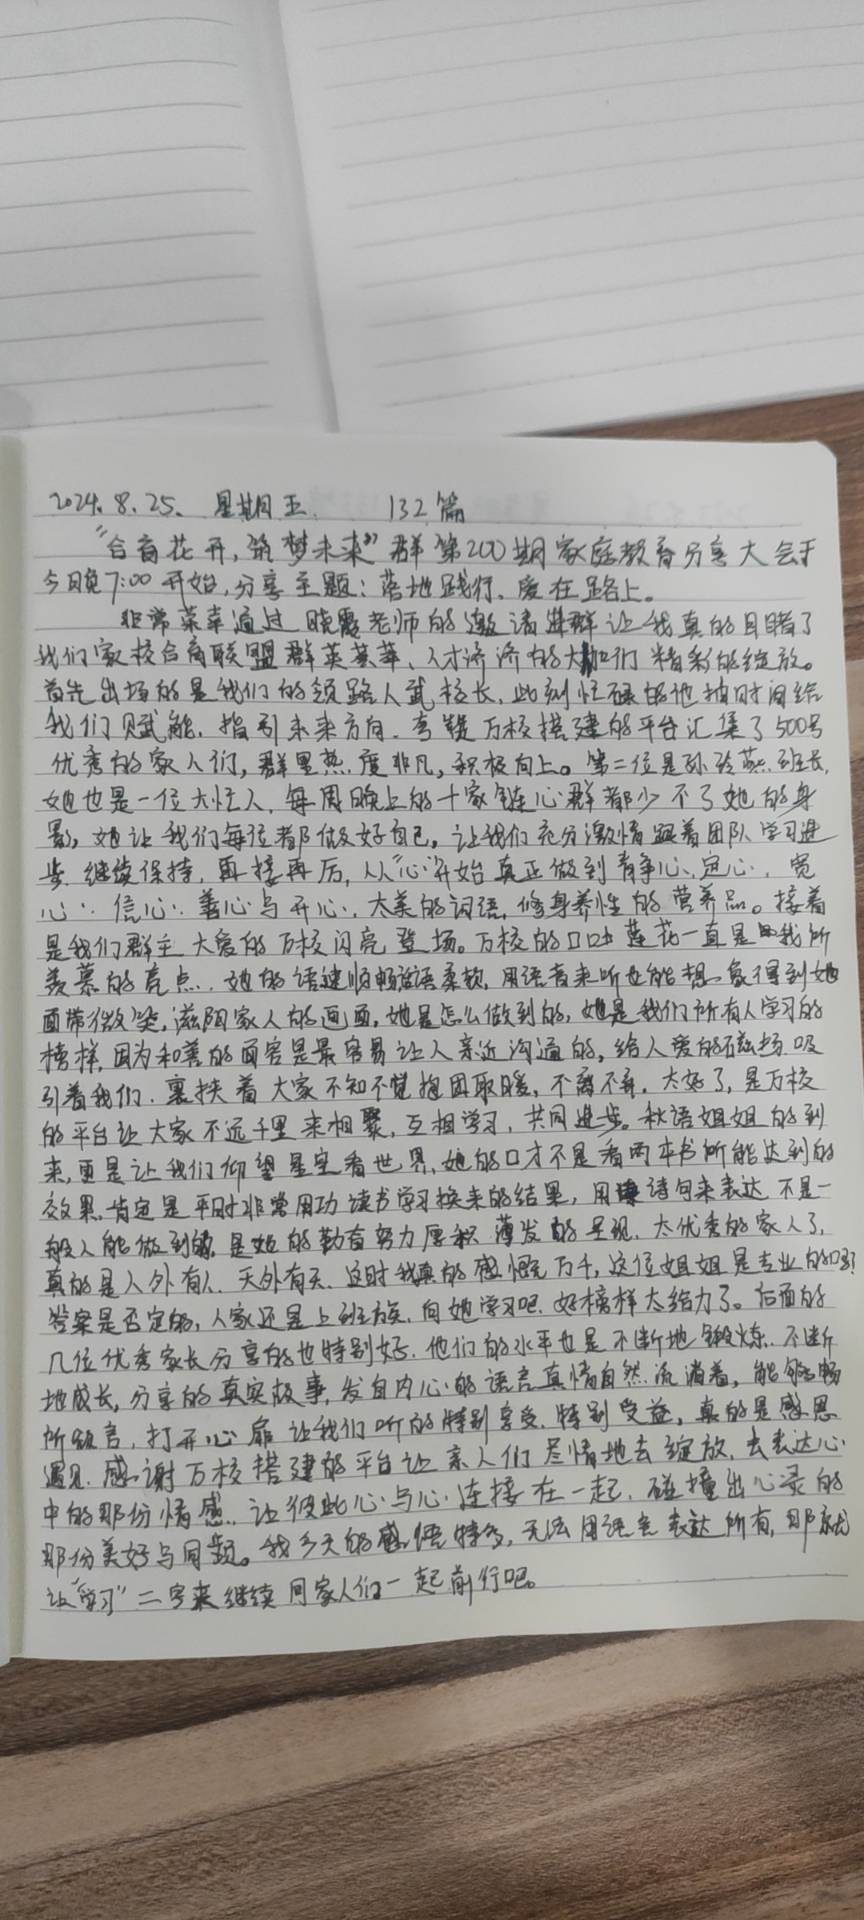 2024.8.25. 星期五. 132篇
“合育花开,筑梦未来”群第200期家庭教育分享大会于
今日晚7:00开始,分享主题:落地践行、爱在路上。
非常荣幸通过晓霞老师的邀请进群让我真的目睹了
我们家校合育联盟群英荟萃、人才济济的大咖们精彩的绽放。
首先出场的是我们的领路人武校长,此刻忙碌的他抽时间给
我们赋能.指引未来方向.万校搭建的平台汇集了500号
优秀的家人们,群里热度非凡,积极向上。第二位是孙玲英班长,
她也是一位大忙人.每周晚上的十家链心群都少不了她的身
影,她让我们每位都做好自己,让我们充分激情跟着团队学习进
步.继续保持,再接再厉,从“心”开始真正做到静心、定心、宽
心、信心、善心与开心,太美的词语,修身养性的营养品。接着
是我们群主大爱的万校闪亮登场。万校的口吐莲花一直是我所
羡慕的亮点.她的语速顺畅话语柔软,用语音来听也能想象得到她
面带微笑,滋润家人的画面,她是怎么做到的,她是我们所有人学习的
榜样,因为和善的面容是最容易让人亲近沟通的,给人爱的磁场吸
引着我们.裹挟着大家不知不觉抱团取暖,不离不弃.太好了,是万校
的平台让大家不远千里来相聚,互相学习,共同进步。秋语姐姐的到
来,更是让我们仰望星空看世界,她的口才不是看两本书所能达到的
效果,肯定是平时非常用功读书学习换来的结果,用诗句来表达不是一
般人能做到的,是她的勤奋努力厚积薄发的呈现.太优秀的家人了,
真的是人外有人.天外有天.这时我真的感慨万千,这位姐姐是专业的吗?
答案是否定的,人家还是上班族.向她学习吧.好榜样太给力了。后面的
几位优秀家长分享的也特别好.他们的水平也是不断地锻炼.不断
地成长,分享的真实故事,发自内心的语言真情自然流淌着,能够畅
所欲言,打开心扉让我们听的特别享受.特别受益,真的是感恩
遇见.感谢万校搭建的平台让亲人们尽情地去绽放,去表达心
中的那份情感.让彼此心与心连接在一起.碰撞出心灵的
那份美好与同频。我今天的感悟特多,无法用语言表达所有,那就
让“学习”二字来继续同家人们一起前行吧。